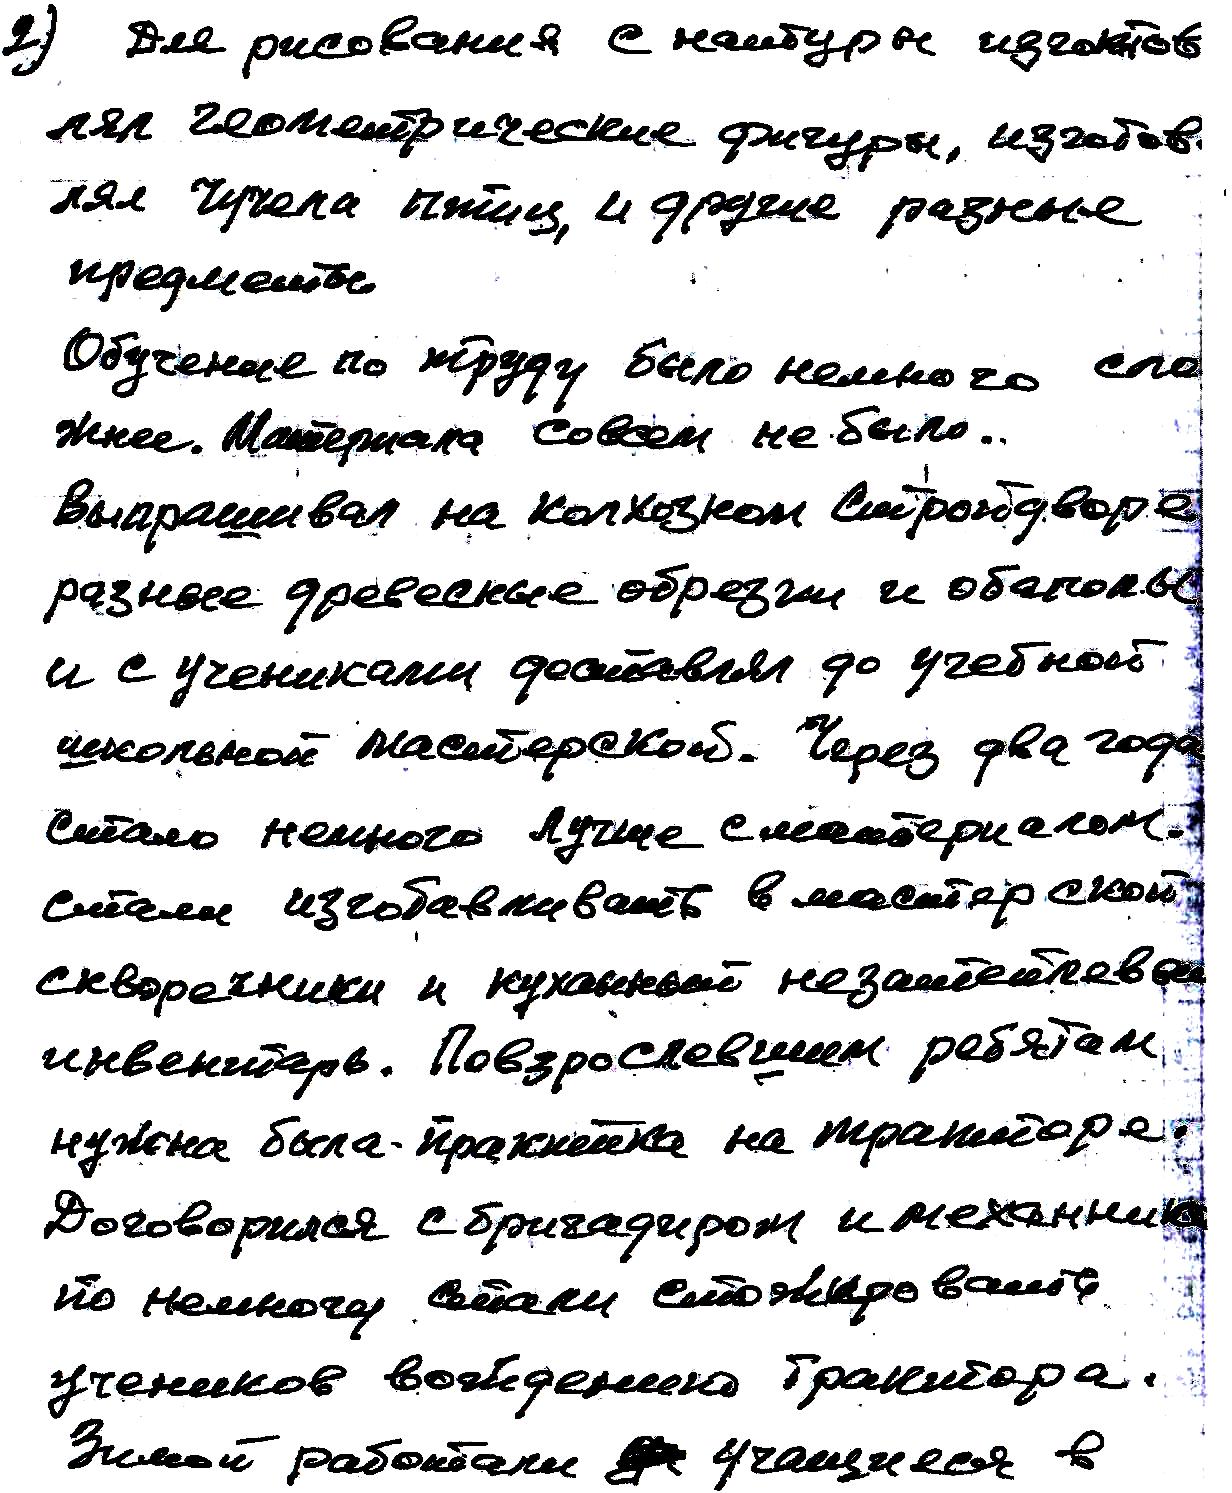 2) Для рисования с натуры изготов
лял геометрические фигуры, изготов.
лял чучела птиц, и другие разные
предметы.
Обучение по труду было немного сло
жнее. Материала совсем не было..
Выпрашивал на колхозном Стройдворе
разные древесные обрезки и обаполы
и с учениками доставлял до учебной
школьной мастерской. Через два года
стало немного лучше с материалом.
стали изготавливать в мастерской
скворечники и кухонный незатейлевый
инвентарь. Повзрослевшим ребятам
нужна была практика на тракторе.
Договорился с бригадиром и механиком
по немногу стали стожировать
учеников вождению трактора.
Зимой работали учащиеся в